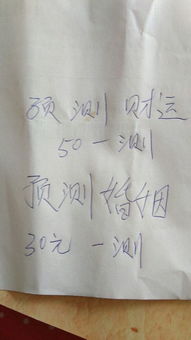 预测财运
50一测
预测婚姻
30元一测